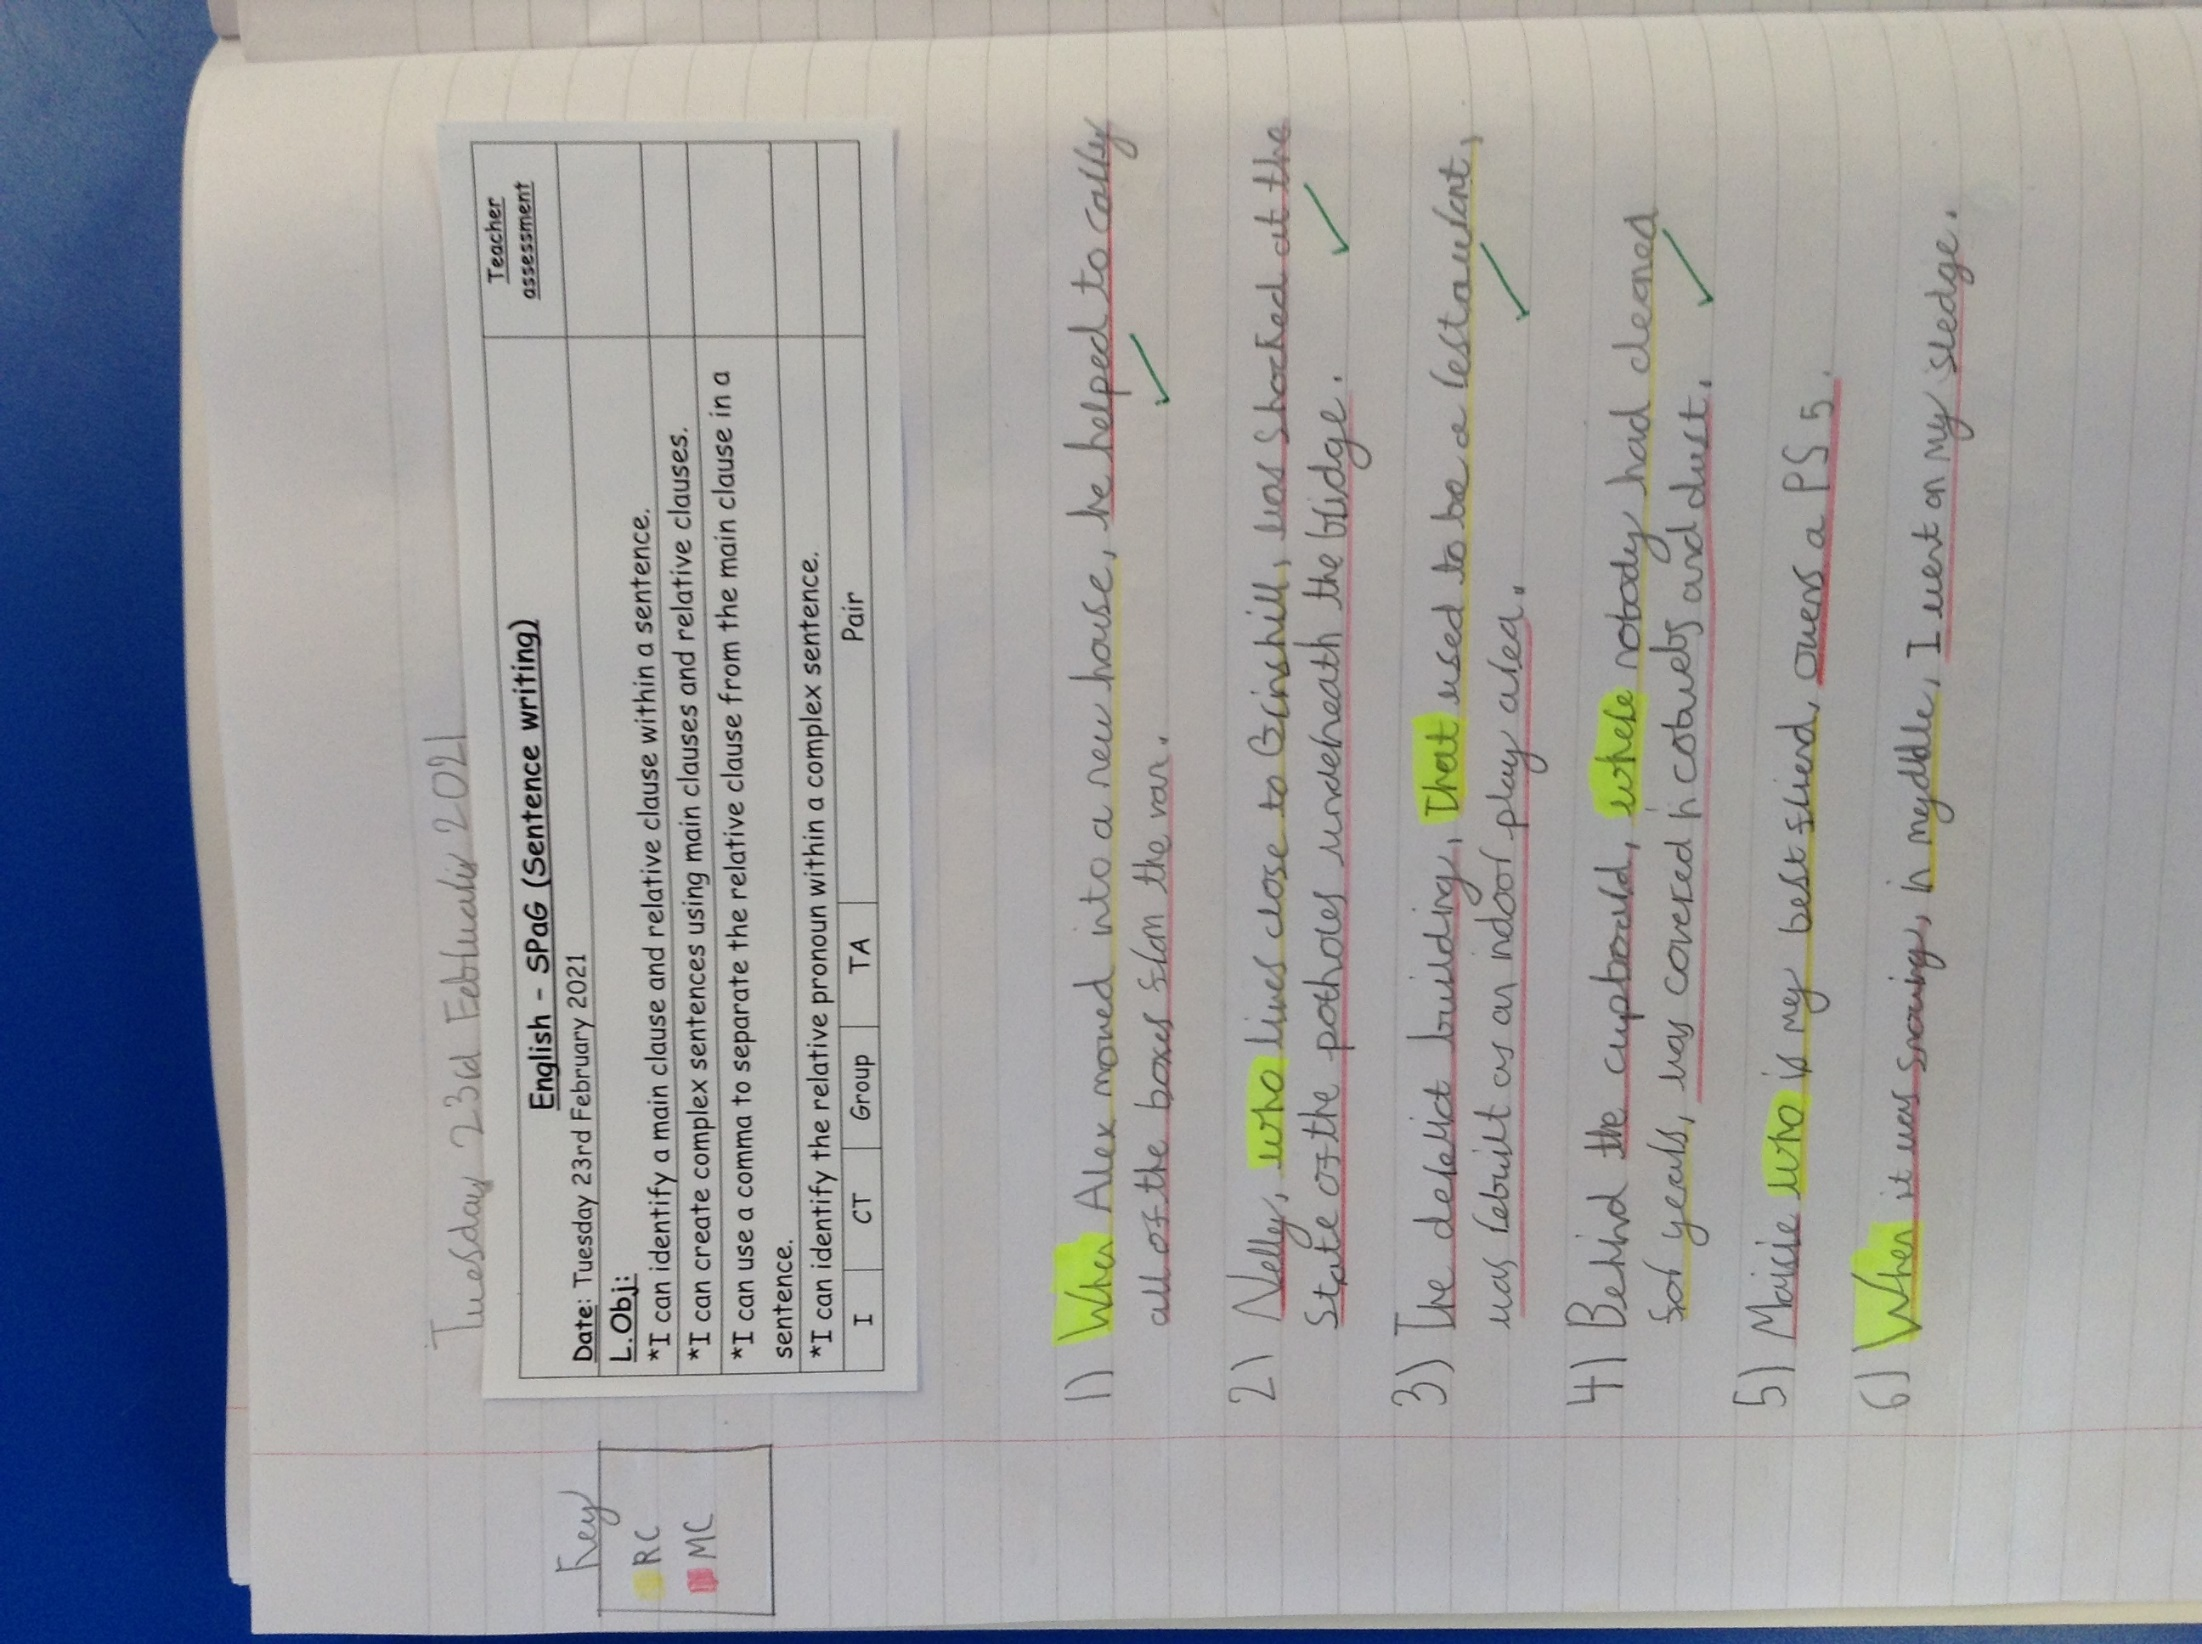 Tuesday 23rd Februaray 2021
English - SPaG (Sentence writing)
Teacher
assessment
Date: Tuesday 23rd February 2021
L.Obj:
*I can identify a main clause and relative clause within a sentence.
*I can create complex sentences using main clauses and relative clauses.
*I can use a comma to separate the relative clause from the main clause in a
sentence.
*I can identify the relative pronoun within a complex sentence.
I CT Group TA Pair
Key
RC
MC
1) When Alex moved into a new house, he helped to carry
all of the boxes from the van.
2) Nelly, who lives close to Grinshill, was shocked at the
state of the potholes underneath the bridge.
3) The derelict building, that used to be a restaurant,
was rebuilt as an indoor play area.
4) Behind the cupboard, where nobody had cleaned
for years, was covered in cobwebs and dust.
5) Maisie who is my best friend, owns a PS5.
6) When it was snowing, in myddle, I went on my sledge.